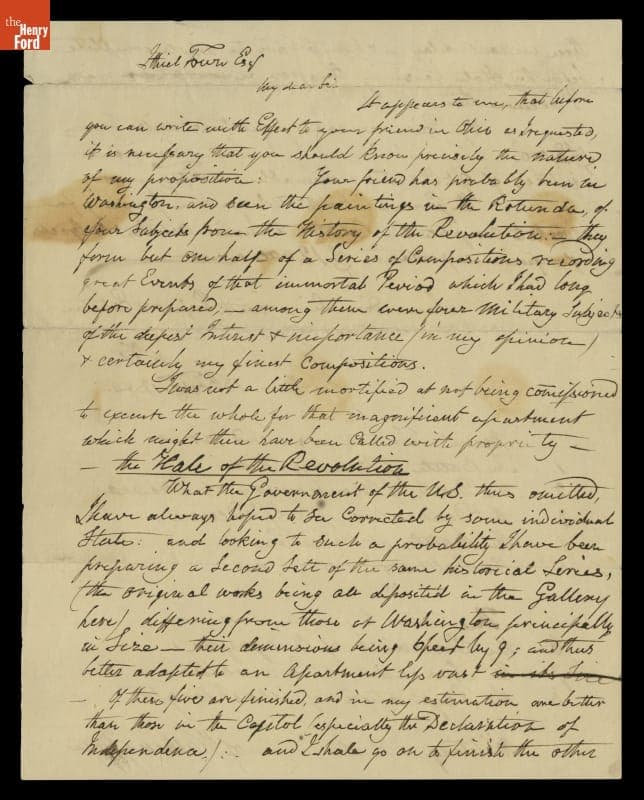 the
Henry
Ford
Ithiel Town Esq
My dear Sir
It appears to me, that before
you can write with Effect to your friend in Ohio as I requested,
it is necessary that you should know precisely the nature
of my proposition: Your friend has probably been in
Washington, and seen the paintings in the Rotunda, of
four Subjects from the History of the Revolution:— they
form but one half of a Series of Compositions recording
great Events of that immortal Period which I had long
before prepared,— among them were four Military Subjects
of the deepest Interest & importance (in my opinion)
& certainly my finest Compositions.
I was not a little mortified at not being comissioned
to execute the whole for that magnificent apartment
which might then have been Called with propriety —
— the Hale of the Revolution
What the Government of the U.S. thus omitted,
I have always hoped to see Corrected by some individual
State: and looking to such a probability I have been
preparing a Second Sett of the same historical Series,
(the original works being all deposited in the Gallery
here) differing from those at Washington principally
in Size — their dimensions being 6 feet by 9; and thus
better adapted to an Apartment less vast in its Size
— Of these five are finished, and in my estimation are better
than those in the Capitol (especially the Declaration of
Independence.):— and I shale go on to finish the other